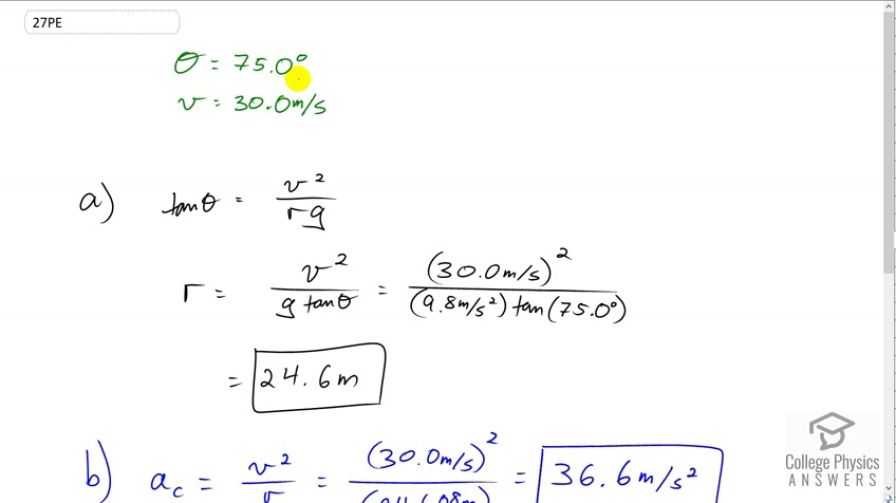 27PE
θ = 75.0°
v = 30.0m/s
a) tanθ = v²/rg
r = v²/(g tanθ) = (30.0m/s)²/((9.8m/s²)tan(75.0°))
= 24.6m
b) a_c = v²/r = (30.0m/s)² = 36.6m/s²
College Physics
ANSWERS